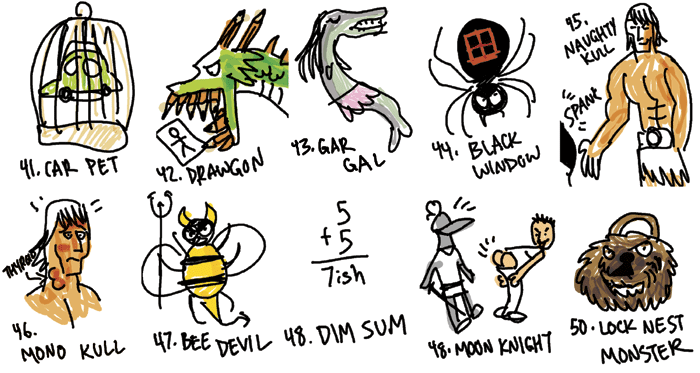 41. CAR PET
42. DRAWGON
43. GAR
GAL
44. BLACK
WINDOW
45.
NAUGHTY
KULL
SPANK
THYROID
46.
MONO KULL
47. BEE DEVIL
5
+ 5
7ish
48. DIM SUM
48. MOON KNIGHT
50. LOCK NEST
MONSTER